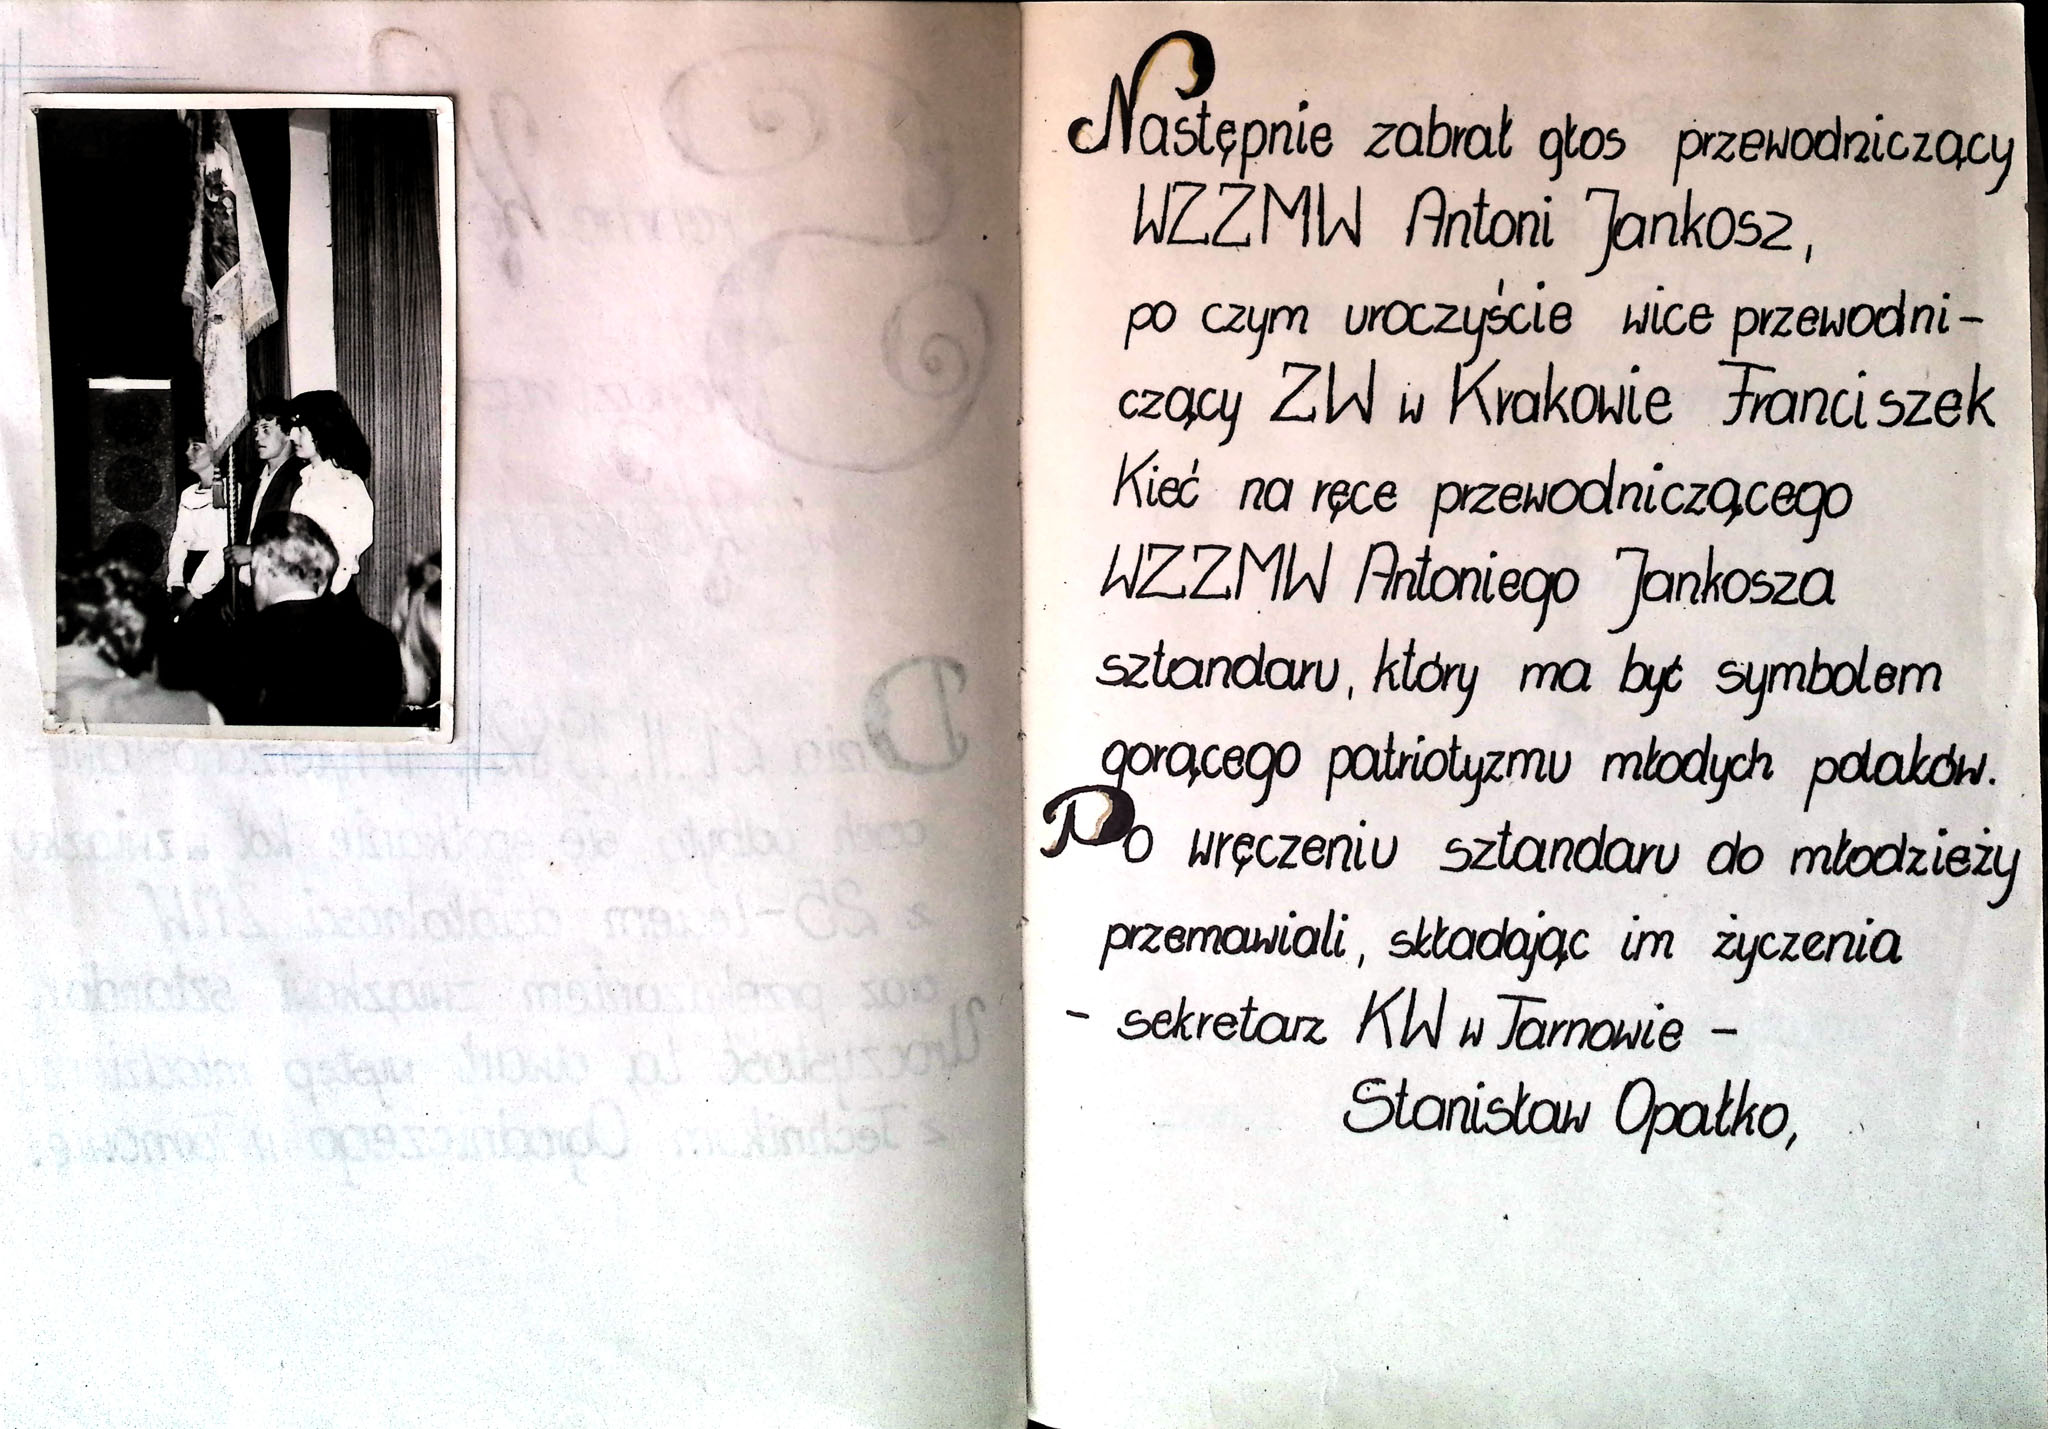 Następnie zabrał głos przewodniczący
WZZMW Antoni Jankosz,
po czym uroczyście wice przewodni-
czący ZW w Krakowie Franciszek
Kieć na ręce przewodniczącego
WZZMW Antoniego Jankosza
sztandaru, który ma być symbolem
gorącego patriotyzmu młodych polaków.
Po wręczeniu sztandaru do młodzieży
przemawiali, składając im życzenia
- sekretarz KW w Tarnowie -
Stanisław Opałko,